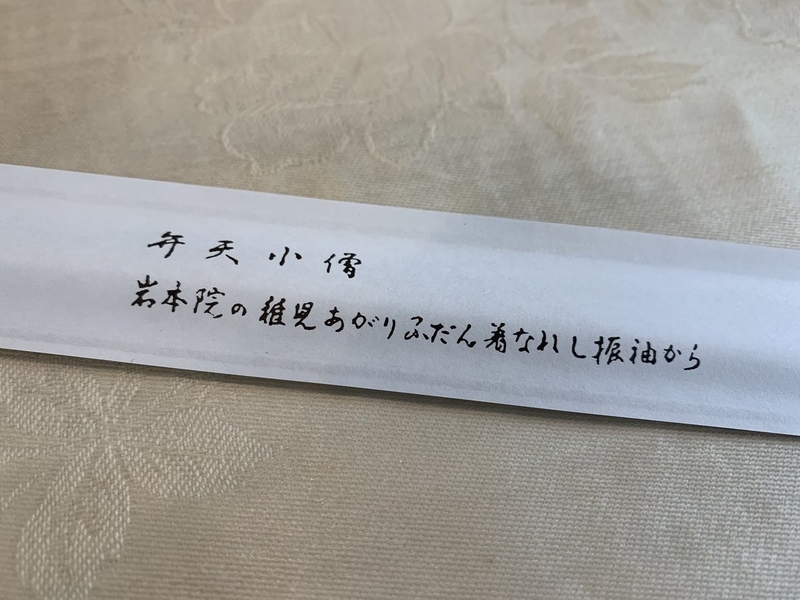 弁天小僧
岩本院の稚児あがりふだん着なれし振袖から